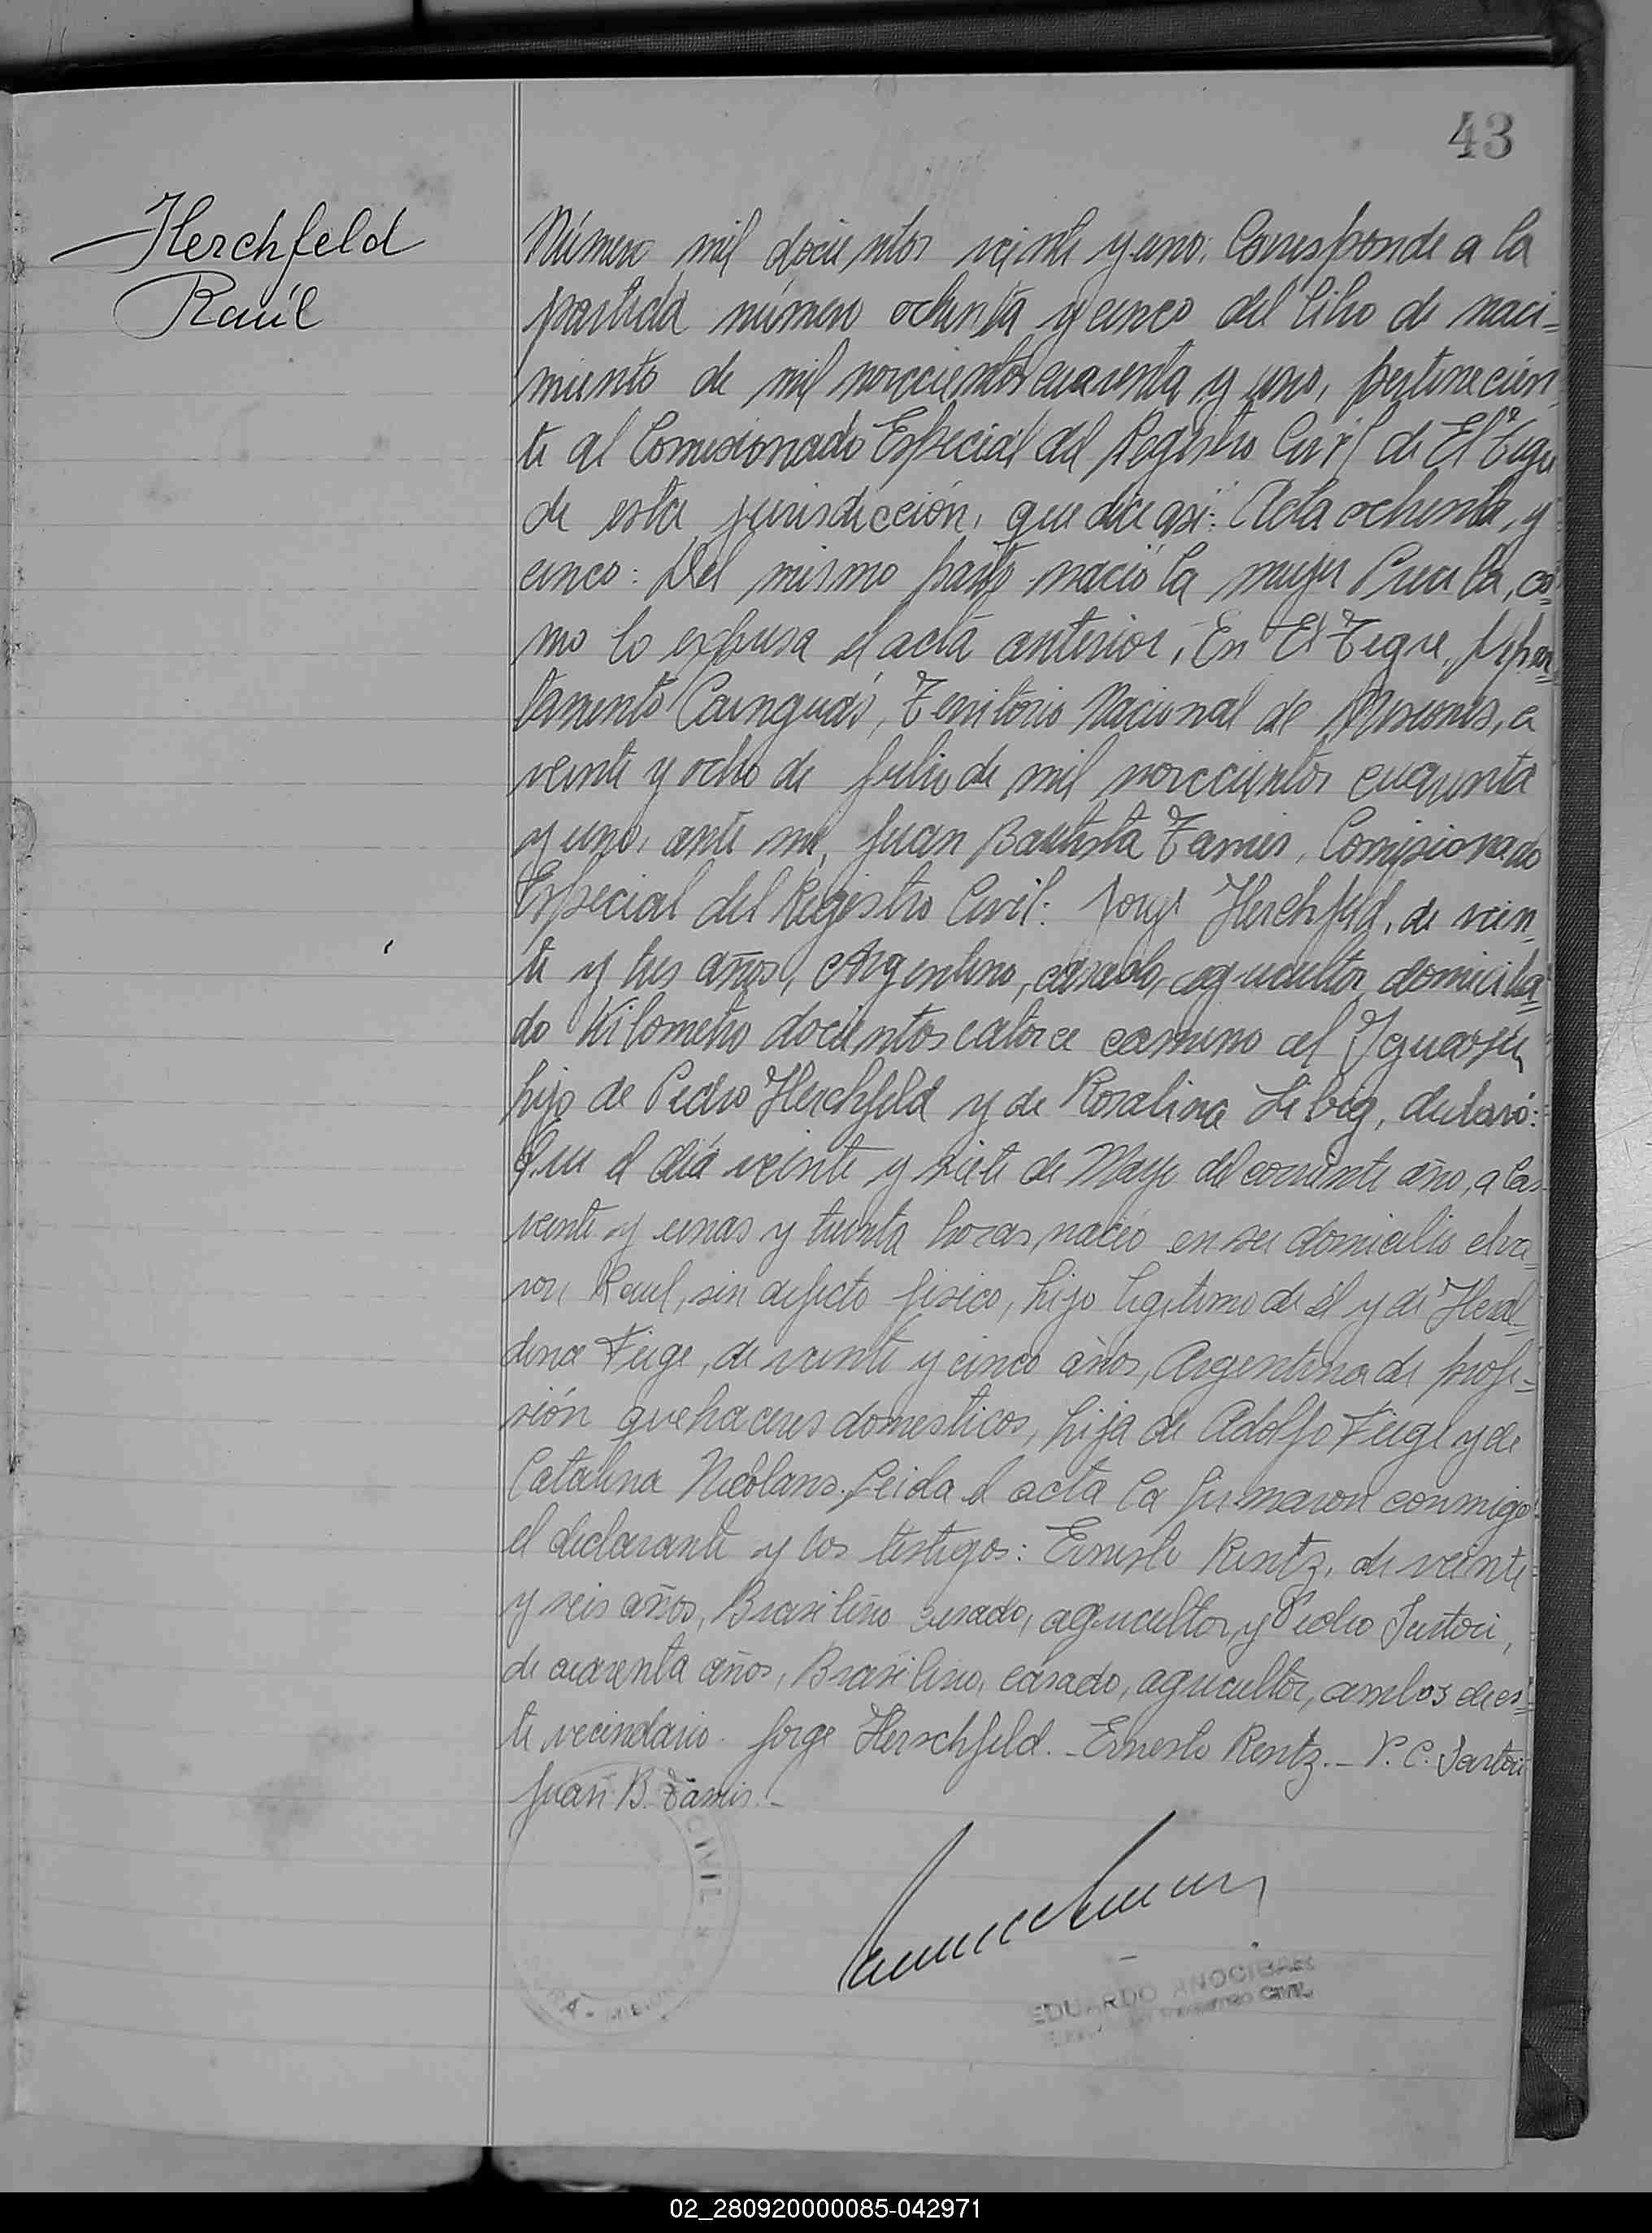 43
Herchfeld
Raúl
Número mil docientos veinte y uno: Corresponde a la
partida número ochenta y cinco del libro de naci=
miento de mil novecientos cuarenta y uno, pertenecien=
te al Comisionado Especial del Registro Civil de El Tigre
de esta jurisdicción, que dice así: Acta ochenta, y
cinco: Del mismo parto nació la mujer, co=
mo lo expresa el acta anterior, En El Tigre, Depar=
tamento Cainguás, Territorio Nacional de Misiones, a
veinte y ocho de Julio de mil novecientos cuarenta
y uno, ante mi, Juan Bautista, Comisionado
Especial del Registro Civil: Jorge Herchfeld, de vein=
te y tres años, Argentino, casado, agricultor, domicilia=
do Kilometro docientos catorce camino al Iguazu,
hijo de Pedro Herchfeld y de Rosalina Libig, declaró:
Que el día veinte y siete de Mayo del corriente año, a las
veinte y unas y treinta horas, nació en su domicilio el va=
ron Raul, sin defecto fisico, hijo legitimo de él y de Heral=
dina Feige, de veinte y cinco años, Argentina de profe=
sión quehaceres domesticos, hija de Adolfo Feige y de
Catalina Nicolaus. Leida el acta la firmaron conmigo
el declarante y los testigos: Ernesto Rentz, de veinte
y seis años, Brasileño casado, agricultor, y Pedro Sartori,
de cuarenta años, Brasilino, casado, agricultor, ambos de es=
te vecindario. Jorge Herschfeld. - Ernesto Rentz. - P. C. Sartori
Juan B.
CIVIL
EDUARDO ANOCIBAR
REGISTRO CIVIL
02_280920000085-042971